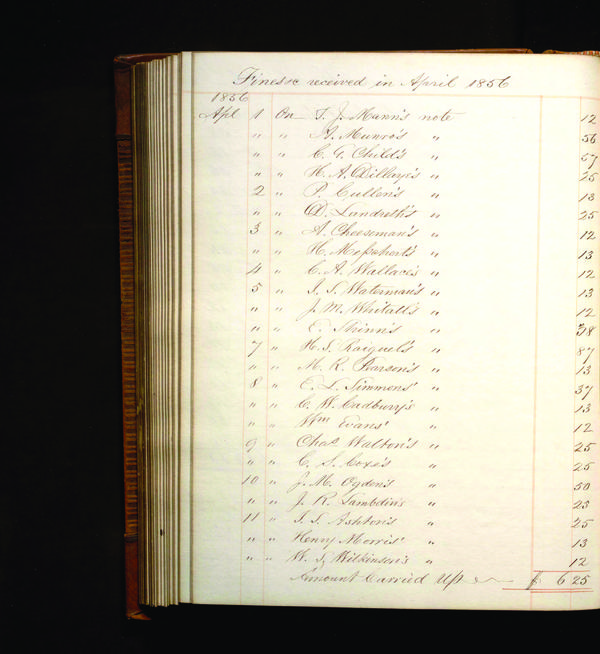 Fines &c received in April 1856
1856
Apl 1 On T. J. Mann's note 12
" " A. Munro's " 56
" " C. G. Child's " 57
" " H. A. Dillaye's " 25
2 " P. Cullen's " 13
" " D. Landreth's " 25
3 " A. Cheeseman's " 12
" " H. " 13
4 " C. A. Wallace's " 12
5 " I. S. Waterman's " 13
" " J. M. Whitall's " 12
" " E. Shinn's " 38
7 " H. S. Raiguel's " 87
" " M. R. Pearson's " 13
8 " E. L. Simmons' " 37
" " C. W. Cadbury's " 13
" " Wm Evans' " 12
9 " Chas Walton's " 25
" " C. S. Coxe's " 25
10 " J. M. Ogden's " 50
" " J. R. Lambdin's " 25
11 " I. S. Ashton's " 25
" " Henry Morris' " 13
" " W. Wilkinson's " 12
Amount Carried Up $ 6 25